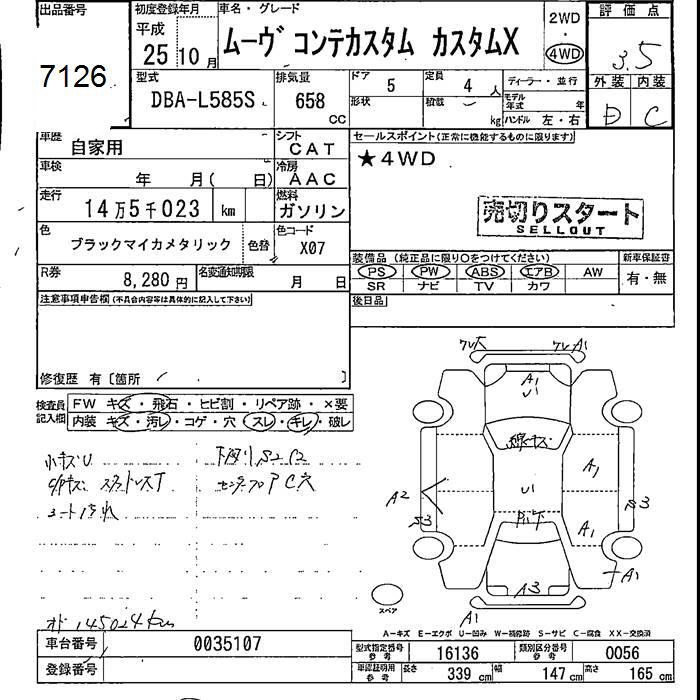 出品番号
7126
初度登録年月
平成
25 10 月
車名・グレード
ムーヴ コンテカスタム カスタムX
2WD
・
4WD
評価点
3.5
外装 内装
D C
型式
DBA-L585S
排気量
658 CC
ドア 5
形状
定員 4 人
積載 kg
ディーラー・並行
モデル年式 年
ハンドル 左・右
車歴 自家用
シフト CAT
車検 年 月( 日)
冷房 AAC
走行 14万5千023 km
燃料 ガソリン
色 ブラックマイカメタリック 色替
色コード X07
R券 8,280円
名変通知期限 月 日
セールスポイント(正常に機能するものに限ります)
★4WD
売切りスタート
SELLOUT
装備品 (純正品に限り○をつけてください)
PS PW ABS エアB AW
SR ナビ TV カワ
新車保証書
有・無
後日品
注意事項申告欄(不具合内容等は具体的に記入して下さい)
修復歴 有〔箇所 〕
検査員記入欄
FW キズ・飛石・ヒビ割・リペア跡・×要
内装 キズ・汚レ・コゲ・穴 スレ・キレ・破レ
小キズU
シート汚れ
オド 145024km
A1
A1
U1
線キズ
A1
U1
A2
S3
S3
A1
A1
A3
A1
スペア
A-キズ E-エクボ U-凹み W-補修跡 S-サビ C-腐食 XX-交換済
車台番号 0035107
登録番号
型式指定番号参考 16136
類別区分番号参考 0056
車認証明用参考 長さ 339 cm 幅 147 cm 高さ 165 cm